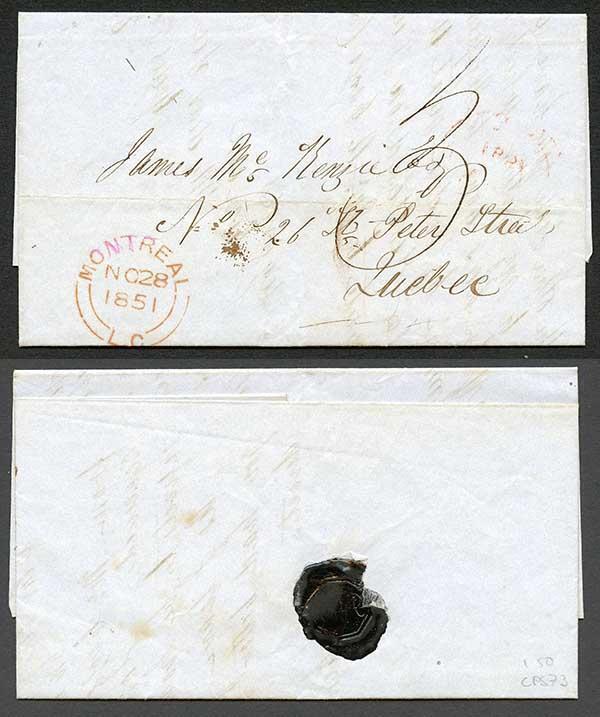 James Mc. Kenzie Esq
No 26 St. Peter Street
Quebec
MONTREAL
NO28
1851
L.C
1 50
CPS73